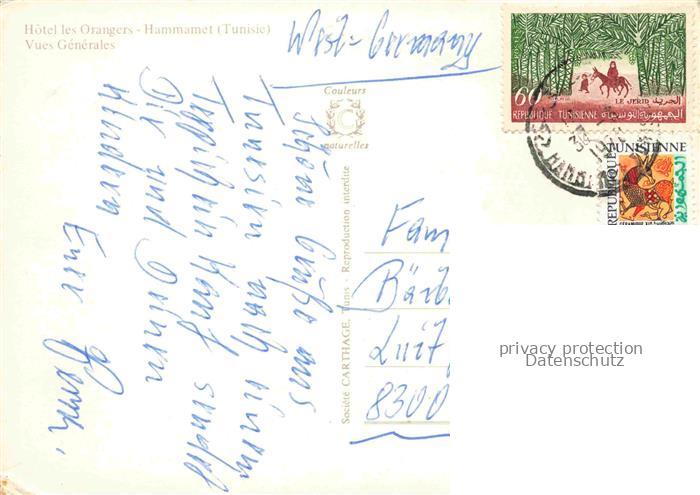 Hôtel les Orangers - Hammamet (Tunisie)
Vues Générales
West-Germany
Schöne Grüße aus
Tunesien nach einem
sendet
Dir und Deinen
Kindern
Euer
Couleurs
naturelles
Société CARTHAGE, Tunis - Reproduction interdite
60
LE JERID الجريد
REPUBLIQUE TUNISIENNE الجمهورية التونسية
REPUBLIQUE
TUNISIENNE
Fam
Bärb
Luit
8300
privacy protection
Datenschutz